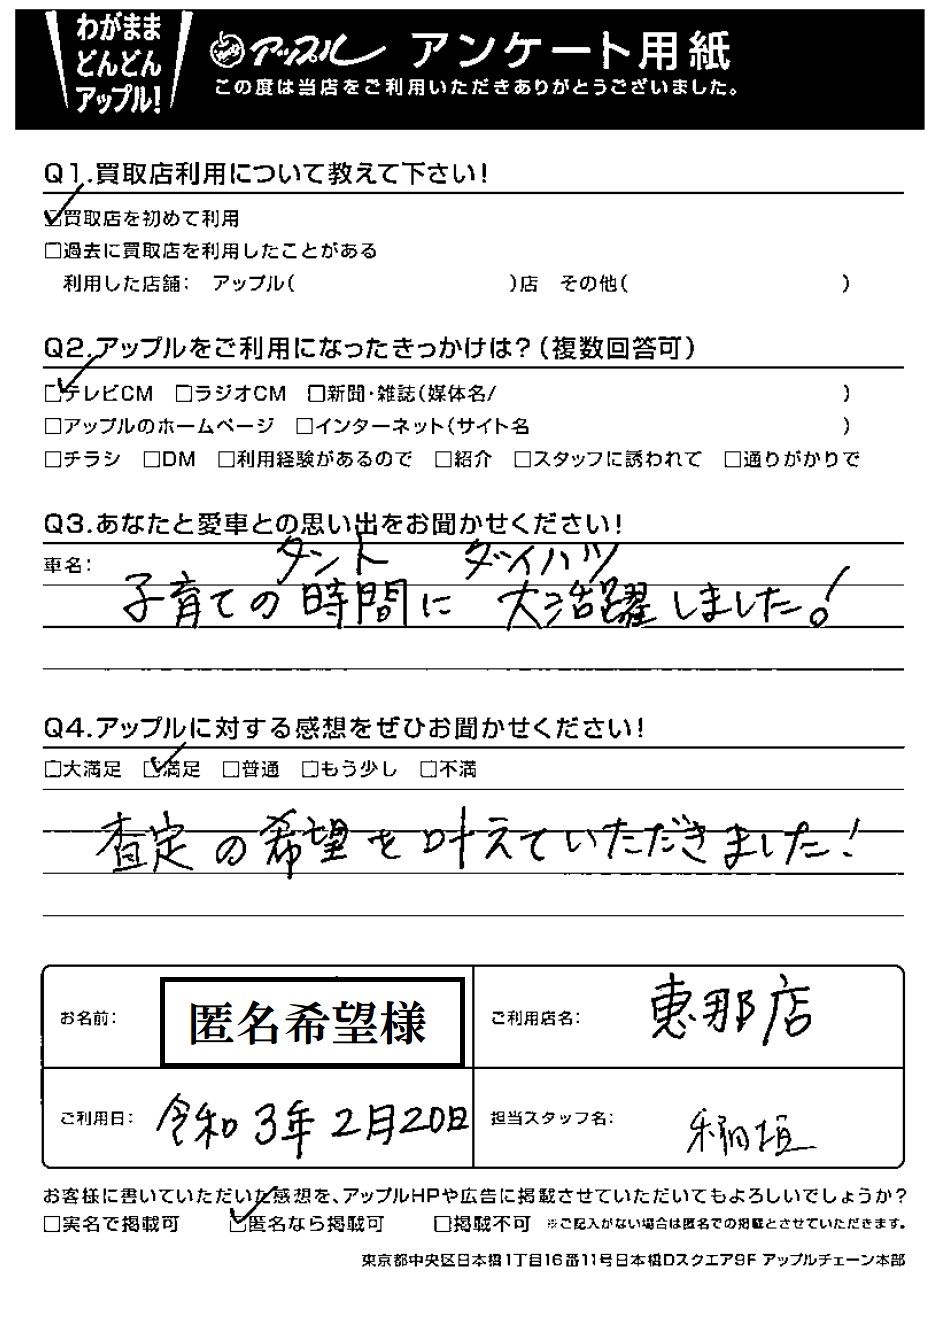 わがまま
どんどん
アップル!
アップル アンケート用紙
この度は当店をご利用いただきありがとうございました。
Q1.買取店利用について教えて下さい!
☑買取店を初めて利用
□過去に買取店を利用したことがある
利用した店舗: アップル( )店 その他( )
Q2.アップルをご利用になったきっかけは?(複数回答可)
☑テレビCM □ラジオCM □新聞・雑誌(媒体名/ )
□アップルのホームページ □インターネット(サイト名 )
□チラシ □DM □利用経験があるので □紹介 □スタッフに誘われて □通りがかりで
Q3.あなたと愛車との思い出をお聞かせください!
車名: タント ダイハツ
子育ての時間に 大活躍しました!
Q4.アップルに対する感想をぜひお聞かせください!
□大満足 ☑満足 □普通 □もう少し □不満
査定の希望を叶えていただきました!
お名前: 匿名希望様
ご利用店名: 恵那店
ご利用日: 令和3年2月20日
担当スタッフ名: 稲垣
お客様に書いていただいた感想を、アップルHPや広告に掲載させていただいてもよろしいでしょうか?
□実名で掲載可 ☑匿名なら掲載可 □掲載不可 ※ご記入がない場合は匿名での掲載とさせていただきます。
東京都中央区日本橋1丁目16番11号日本橋Dスクエア9F アップルチェーン本部